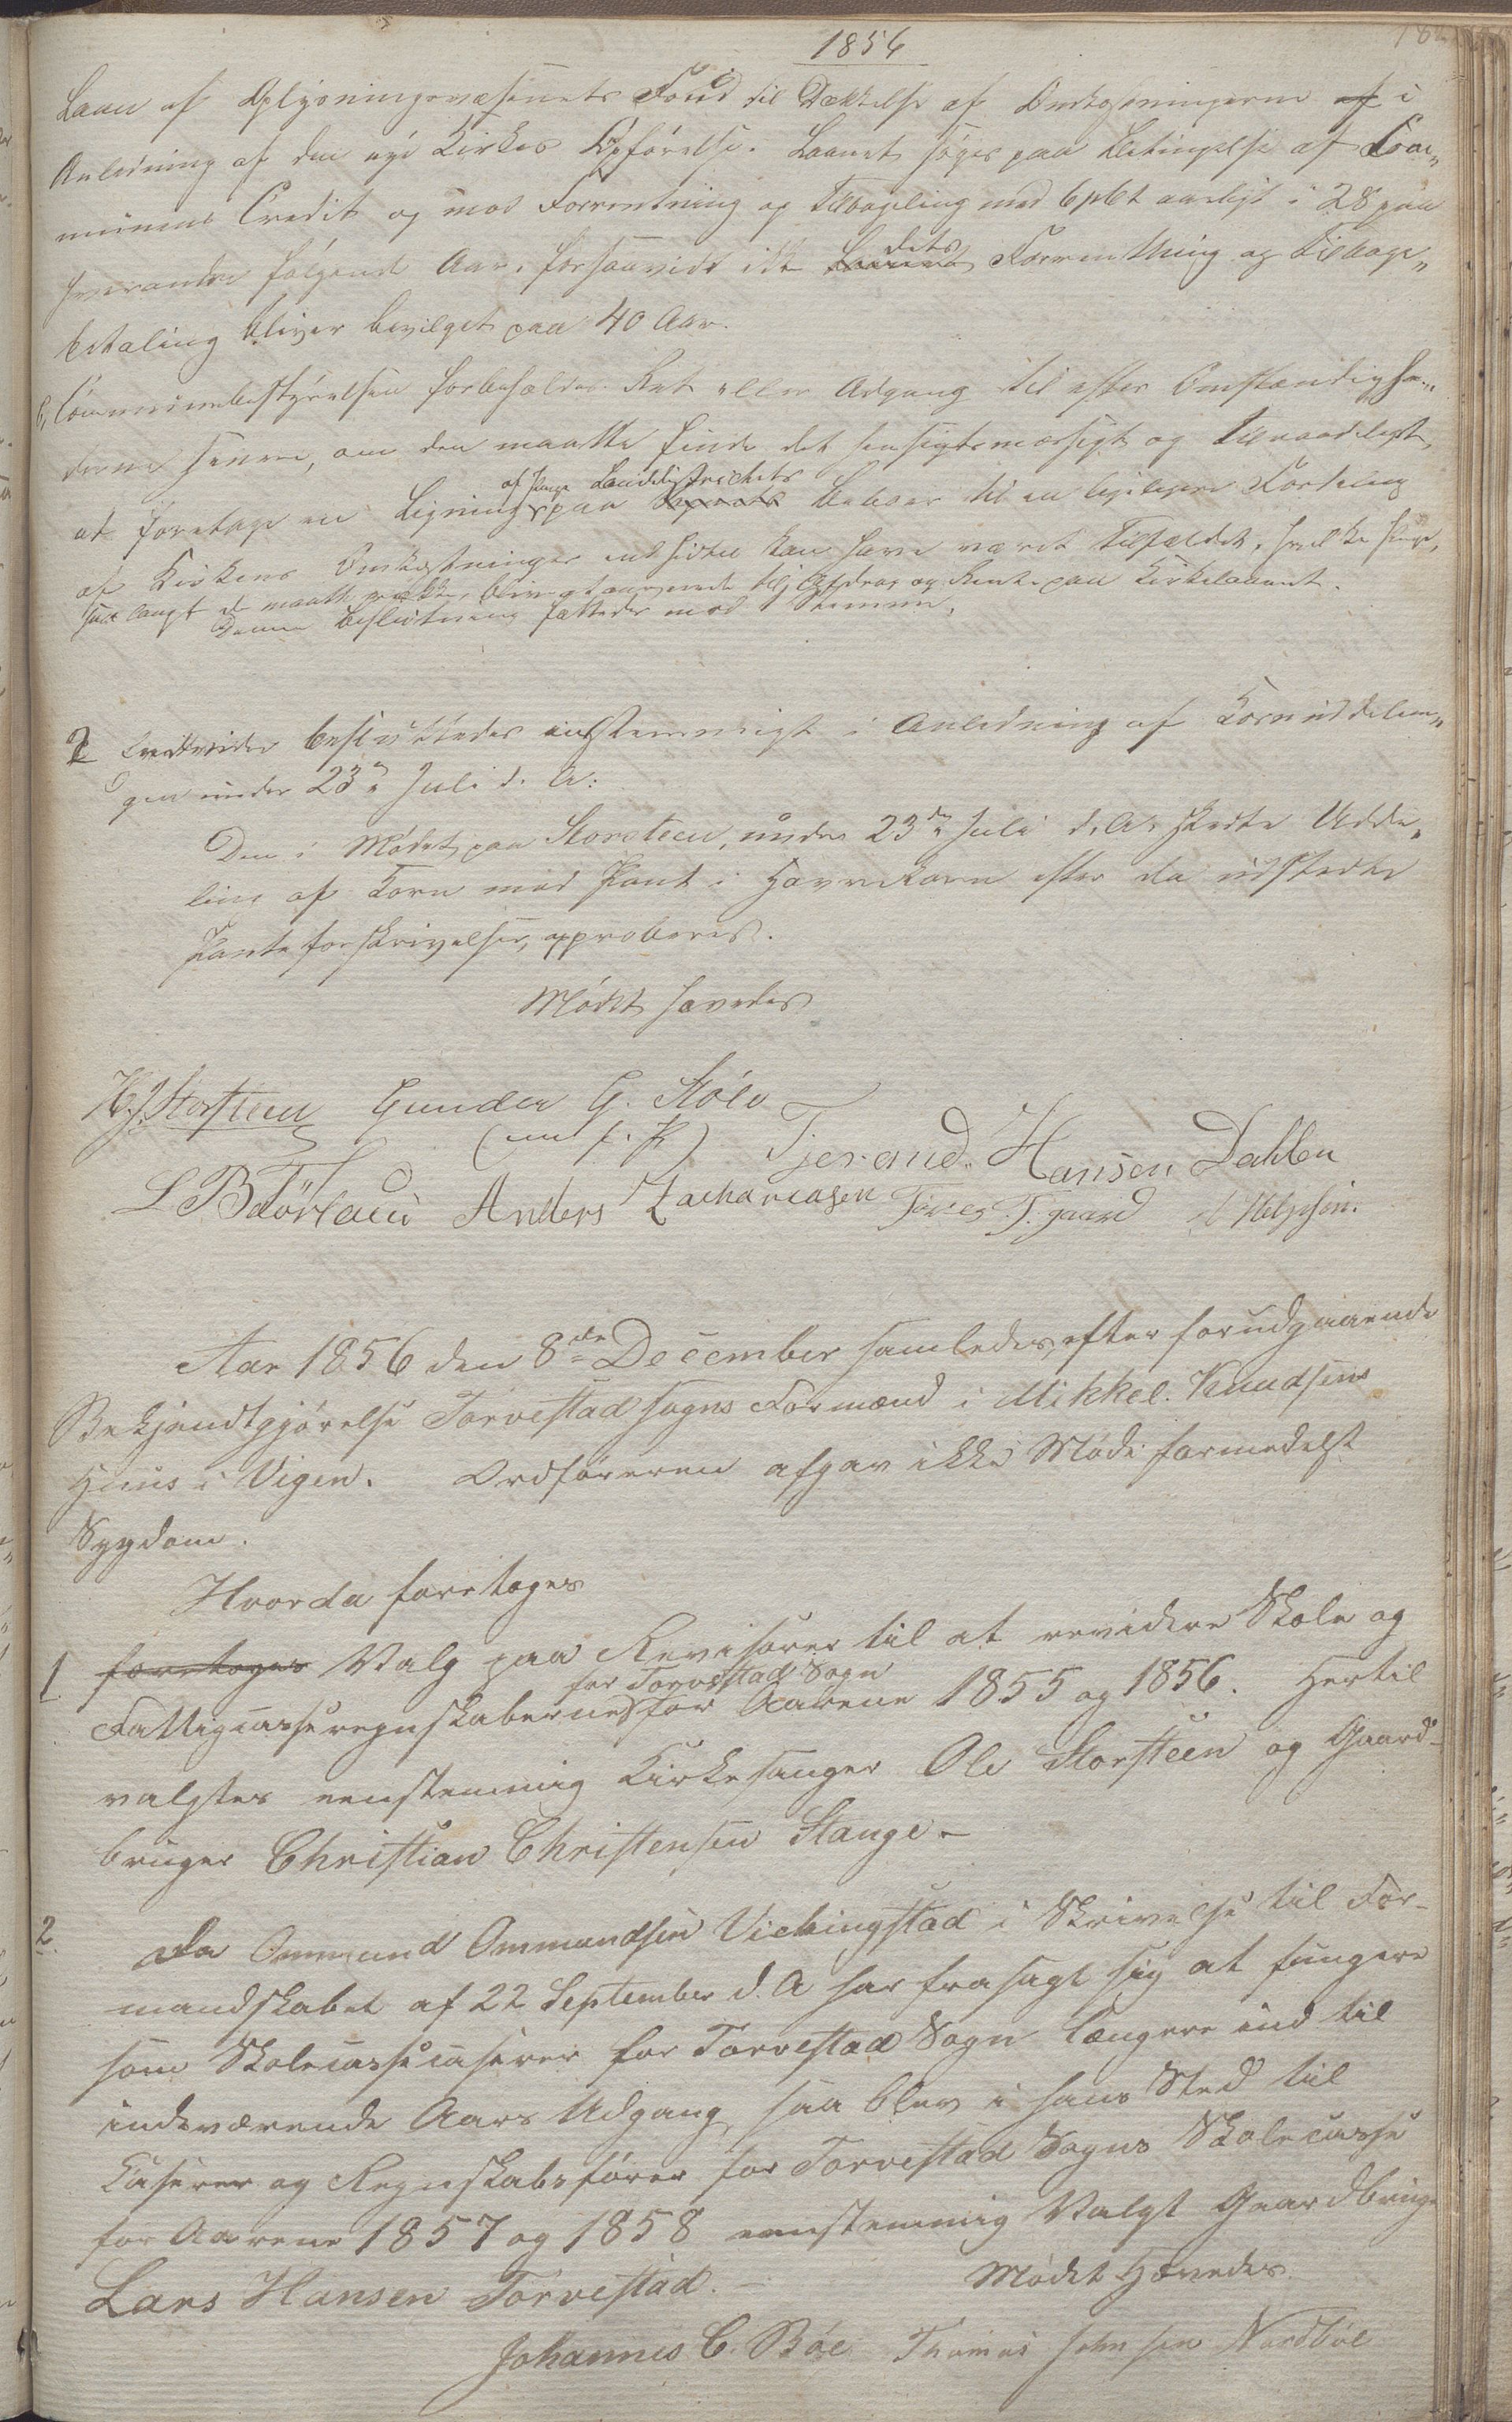 1856
Laan af Oplysningsvæsenets Fond til Dækkelse af Omkostningerne af i
Anledning af den nye Kirkes Opførelse. Laanet søges paa Betingelse af Com„
munens Credit og mod Forrentning og Tilbagebetaling med 6 pCt aarligt i 28 paa
hverandre følgende Aar, forsaavidt ikke Laanets dets Forrentning og Tilbage„
betaling bliver bevilget paa 40 Aar.
Communebestyrelsen forbeholdes Ret eller Adgang til efter Omstændighe„
derne senere, om den maatte finde det hensigtsmæssigt og tilraadeligt,
af Landdistrichets
at foretage en Ligning paa Sognets Beboer til en ligeligere Fordeling
af Kirkens Omkostninger end hidtil kan have været Tilfældet, hvilke Penge,
saa langt de maatte række, bliver at anvende til Afdrag og Rente paa Kirkelaanet.
Denne Beslutning fattedes mod Stemme.
2 Endvidere besluttedes eenstemmigt i Anledning af Kornuddelin„
gen under 23de Juli d. A:
Den i Mødet paa Storsteen, under 23de Juli d. A. skedte Udde„
ling af Korn mod Pant i Havrekorn efter da udstedte
Panteforskrivelser, approberes.
Mødet hævedes
H. J. Storsteen Gunder G. Støle
(m. f. P.) Tjerand Hansen Dahlen
L B Førland Anders Zachariasen Tøres T. gaard Helgesen.
Aar 1856 den 8de December samledes, efter forudgaaende
Bekjendtgjørelse Torvestad Sogns Formænd i Mikkel Knudsens
Huus i Vigen. Ordføreren afgav ikke Møde formedelst
Sygdom.
Hvorda foretoges
1 foretoges Valg paa Revisorer til at revidere Skole og
for Torvestad Sogn
Fattigcasseregnskaberne for Aarene 1855 og 1856. Hertil
valgtes eenstemmig Kirkesanger Ole Storsteen og Gaard-
bruger Christian Christensen Stange –
2. Da Ommund Ommundsen Vickingstad i Skrivelse til For-
mandskabet af 22 September d. A har frasagt sig at fungere
som Skolecassecaserer for Torvestad Sogn længere end til
indeværende Aars Udgang, saa blev i hans Sted til
Caserer og Regnskabsfører for Torvestad Sogns Skolecasse
for Aarene 1857 og 1858 eenstemmig Valgt Gaardbruger
Lars Hansen Torvestad. –
Mødet Hævedes.
Johannes C. Bøe Thomas Johnsen Nordbøe